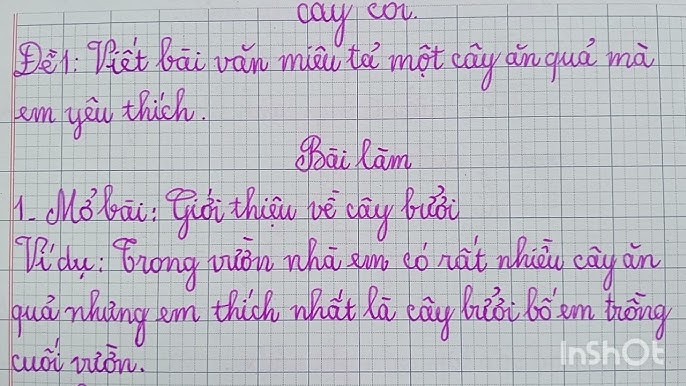 cây cối.
Đề 1: Viết bài văn miêu tả một cây ăn quả mà
em yêu thích.
Bài làm
1- Mở bài: Giới thiệu về cây bưởi
Ví dụ: Trong vườn nhà em có rất nhiều cây ăn
quả nhưng em thích nhất là cây bưởi bố em trồng
cuối vườn.
InShOt